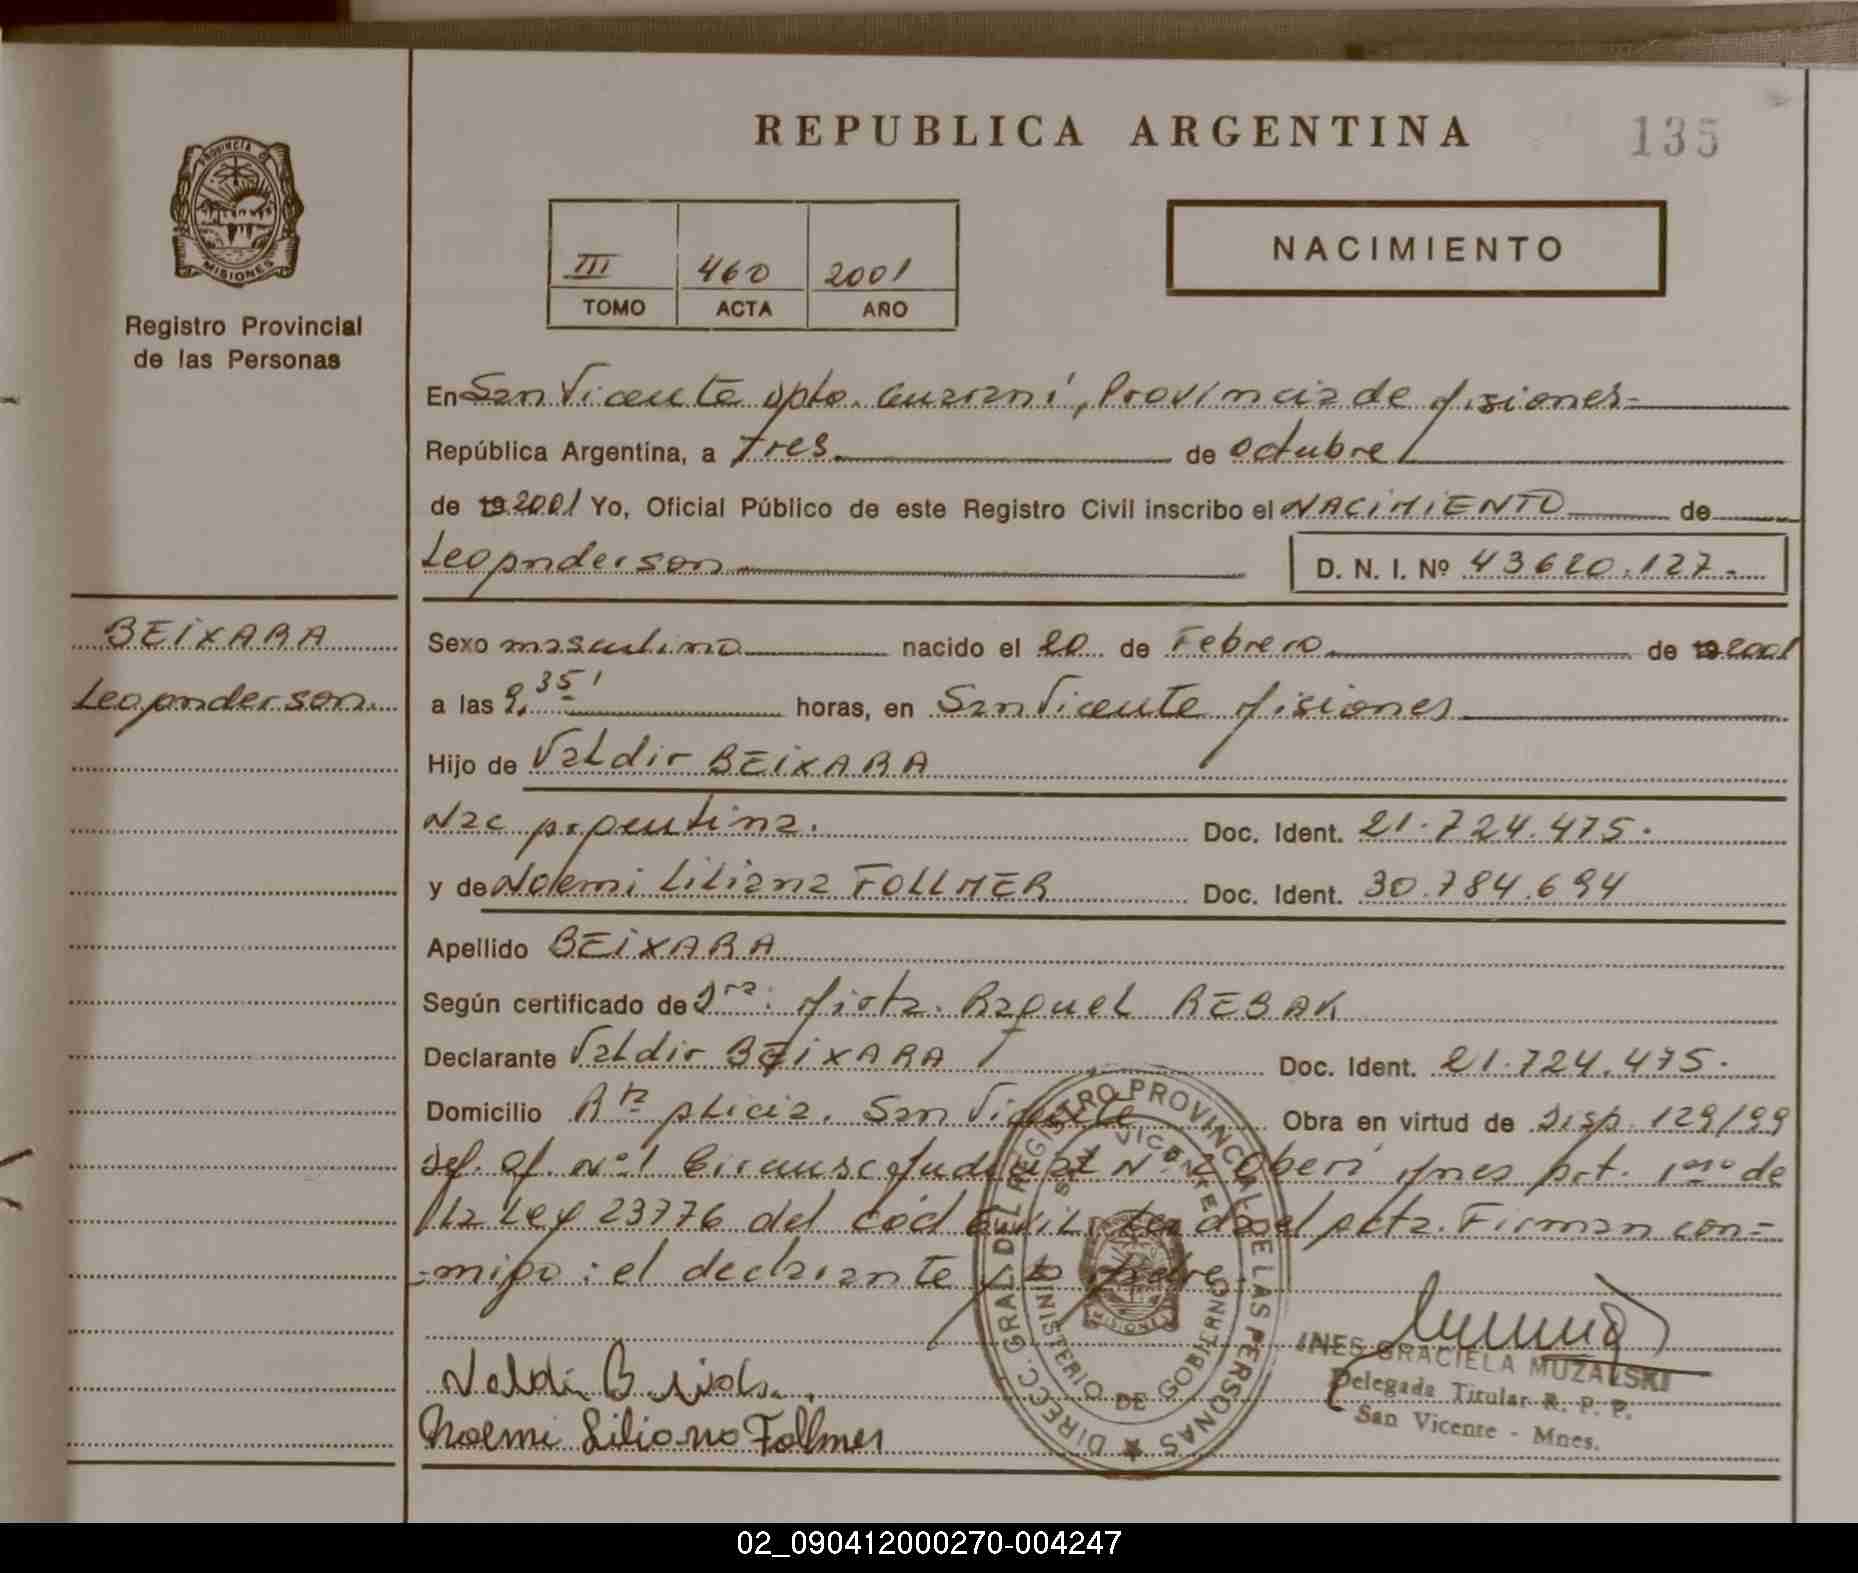 REPUBLICA ARGENTINA
135
PROVINCIA DE
MISIONES
Registro Provincial
de las Personas
III 460 2001
TOMO ACTA AÑO
NACIMIENTO
En San Vicente Dpto. Guaraní, Provincia de Misiones-
República Argentina, a Tres de octubre
de 19 2001 Yo, Oficial Público de este Registro Civil inscribo el NACIMIENTO de
Leoanderson D. N. I. Nº 43620.127-
BEIXARA
Leoanderson.
Sexo masculino nacido el 20 de Febrero de 19 2001
a las 9,35' horas, en San Vicente Misiones
Hijo de Valdir BEIXARA
Nac argentina. Doc. Ident. 21.724.475.
y de Noemi Liliana FOLLMER Doc. Ident. 30.784.694
Apellido BEIXARA
Según certificado de Dra: Mirta. Raquel REBAK
Declarante Valdir BEIXARA Doc. Ident. 21.724.475.
Domicilio Alicia. San Vicente Obra en virtud de Disp. 129/99
Def. Of. Nº 1 Circunsc Judicial Nº 2 Oberá Mnes Art. 1ero de
la Ley 23776 del cód Civil. Leida el acta. Firman con=
-migo: el declarante y la Madre-
DIRECC. GRAL. DEL REGISTRO PROVINCIAL DE LAS PERSONAS
SAN VICENTE
MINISTERIO DE GOBIERNO
MISIONES
Noemi Liliana Follmer
INES GRACIELA MUZALSKI
Delegada Titular R. P. P.
San Vicente - Mnes.
02_090412000270-004247